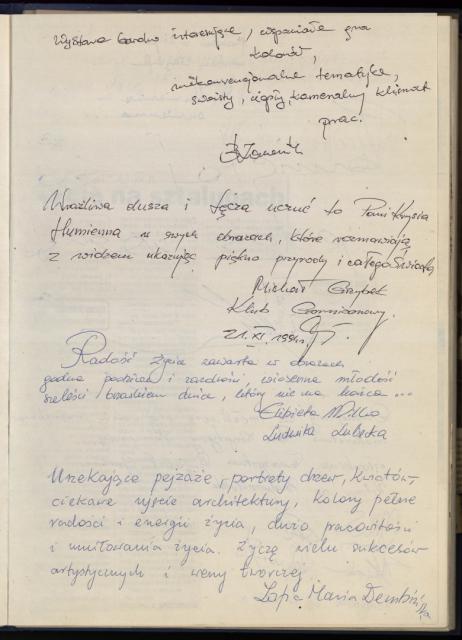 Wystawa bardzo interesujące, wspaniała gra
kolorów,
niekonwencjonalne tematyka,
swoisty, ciepły, kameralny klimat
prac.
Wrażliwa dusza i tęcza uczuć to Pani Krysia
Humienna w swych obrazach, które rozmawiają
z widzem ukazując piękno przyrody i całego Świata
Michał Grzybek
Klub Garnizonowy
21. XI. 1994r.
Radość życia zawarta w obrazach
godna podziwu i zazdrości, wiosenna młodość
dnia, który nie ma końca ...
Elżbieta
Ludwika Lubecka
Urzekające pejzaże, portrety drzew, kwiatów,
ciekawe ujęcie architektury, kolory pełne
radości i energii życia, dużo pracowitości
i umiłowania życia. Życzę wielu sukcesów
artystycznych i weny twórczej
Zofia Maria Dembińska